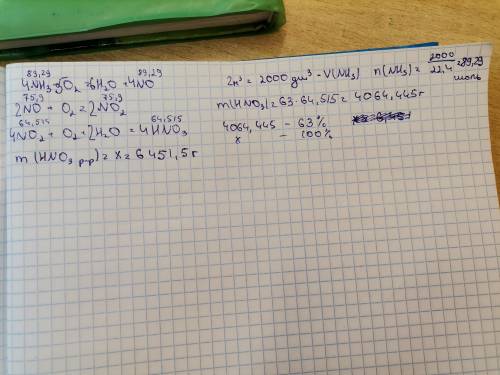 89,29 89,29
4NH₃+5O₂=6H₂O+4NO
75,9 75,9
2NO + O₂ = 2NO₂
64,515 64,515
4NO₂ + O₂ + 2H₂O = 4HNO₃
m (HNO₃ р-р) = x = 6451,5 г
2м³ = 2000 дм³ - V(NH₃) n(NH₃) = 2000/22,4 = 89,29 моль
m(HNO₃) = 63·64,515 = 4064,445 г
4064,445 – 63%
x – 100%